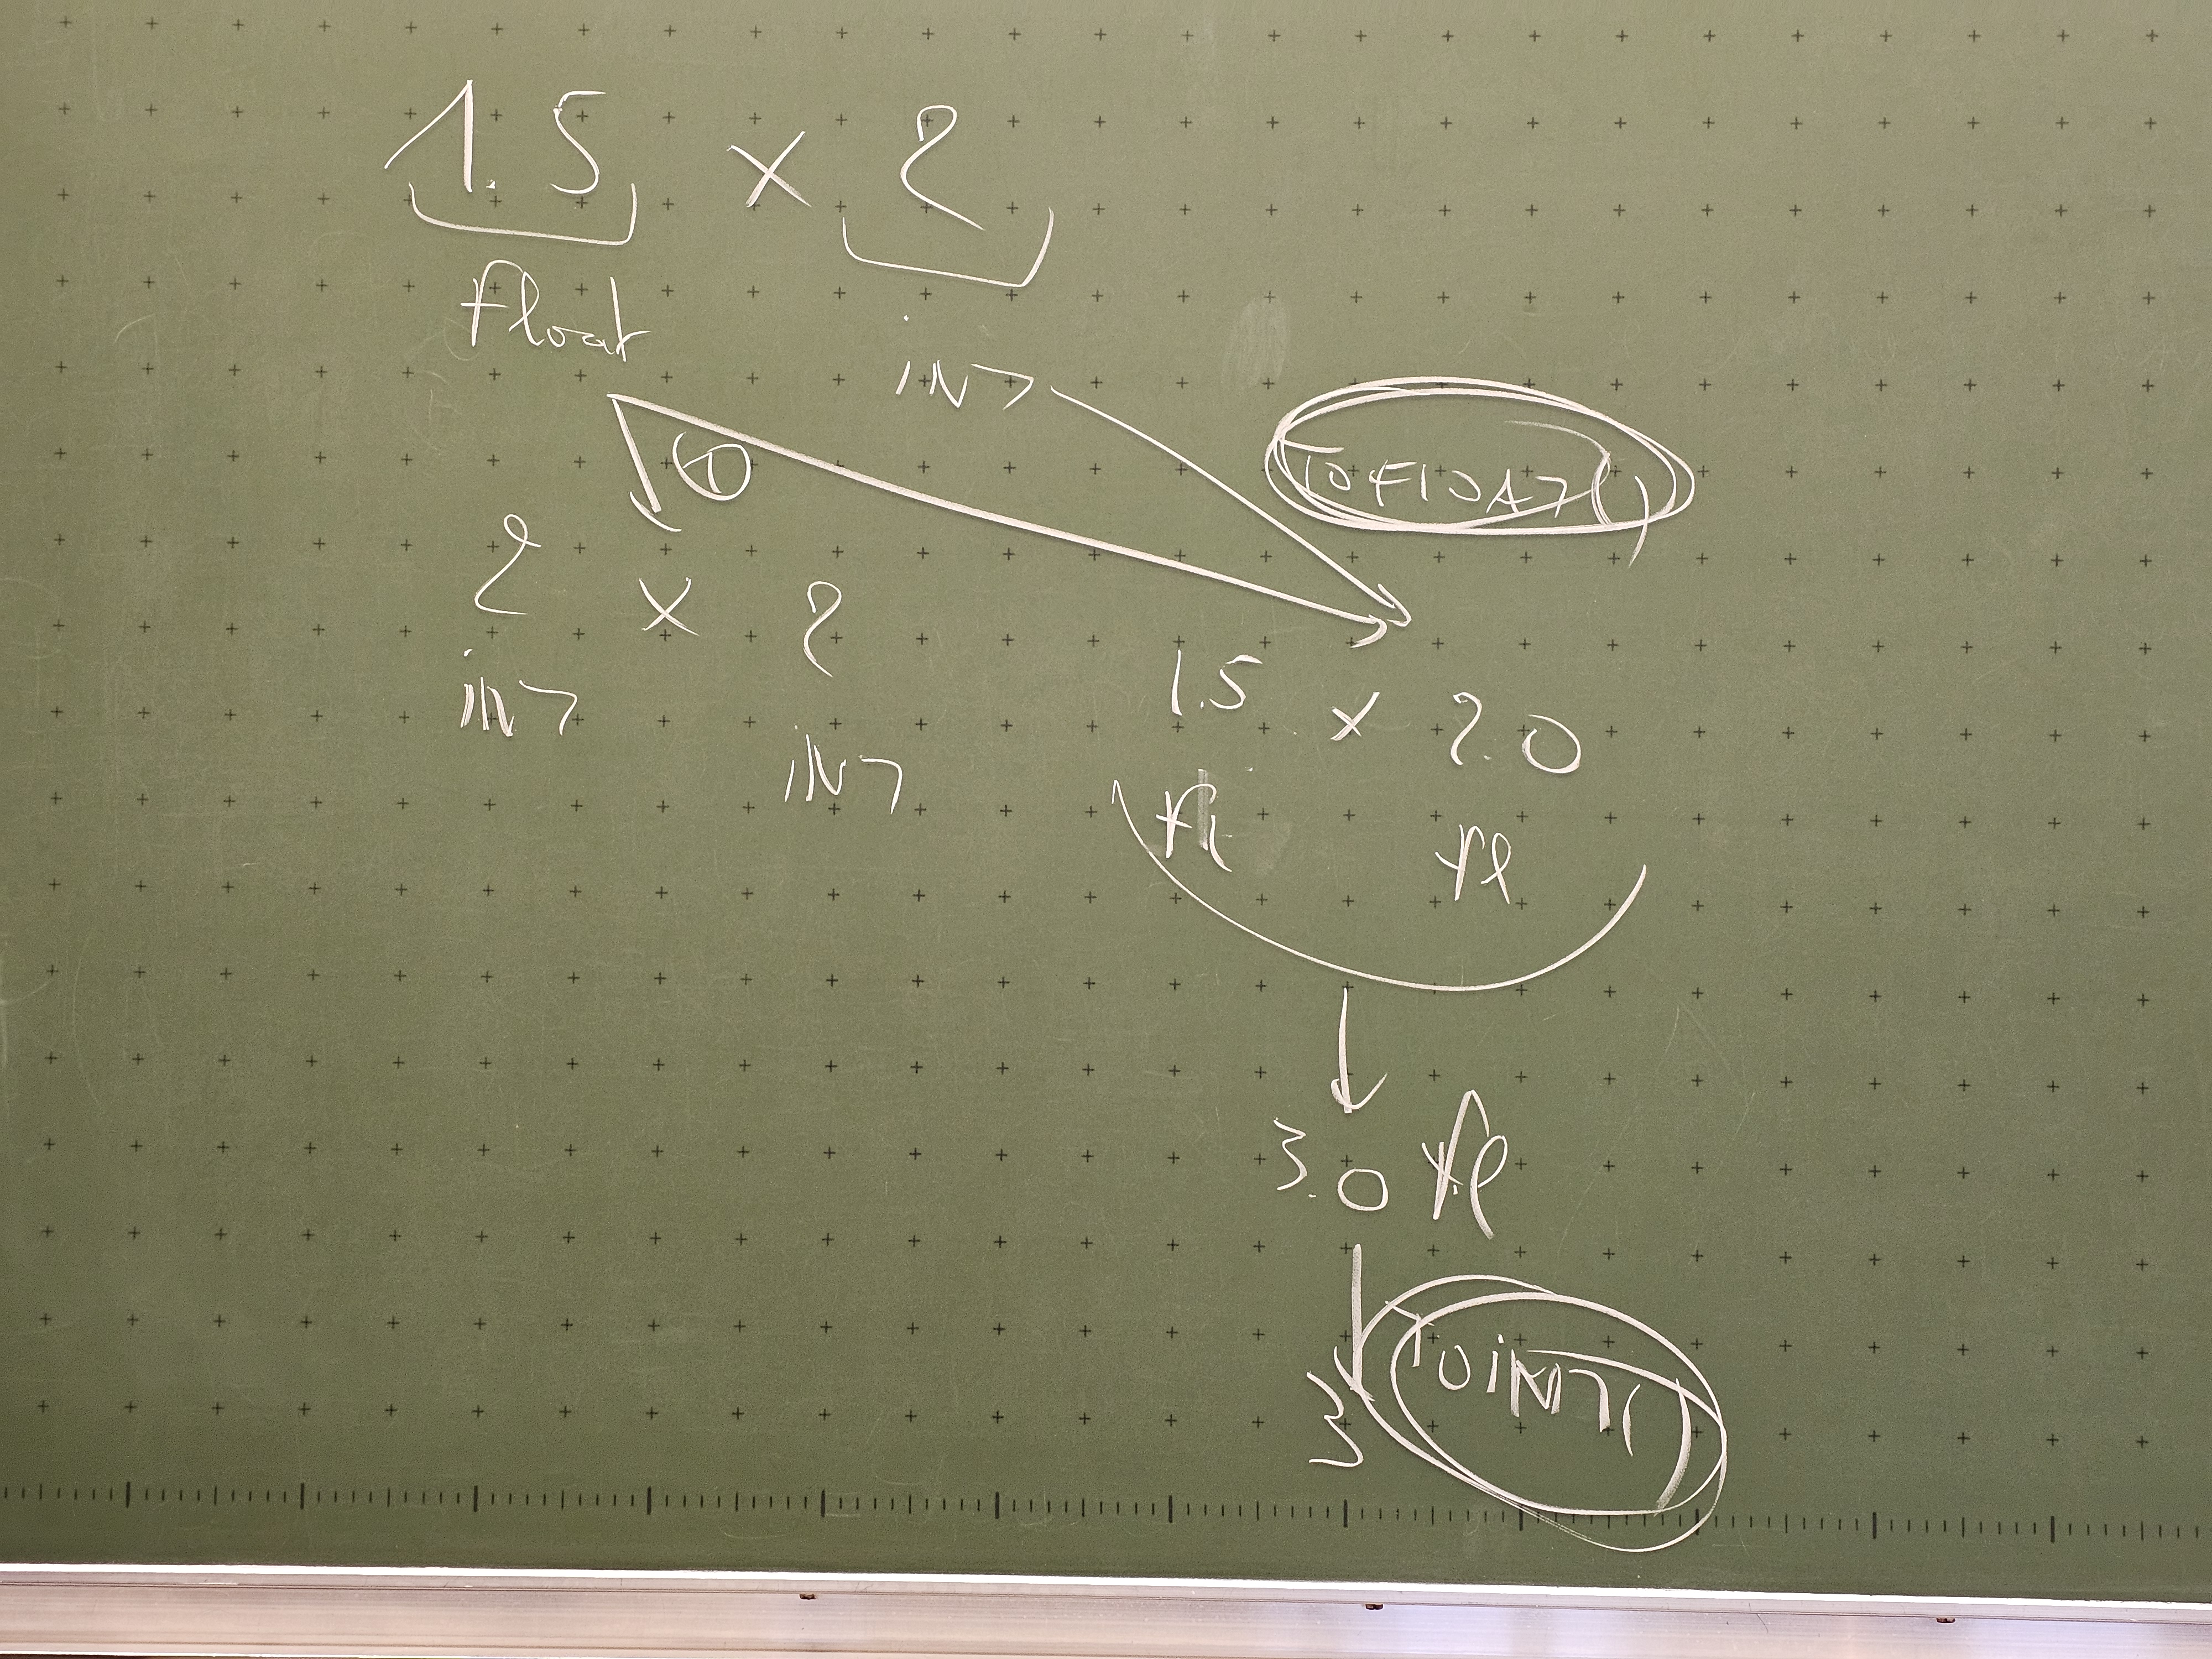 1.5 × 2
float
int
①
TOFLOAT()
2 × 2
int
int
1.5 × 2.0
fl
fl
3.0 fl
TOINT()
3